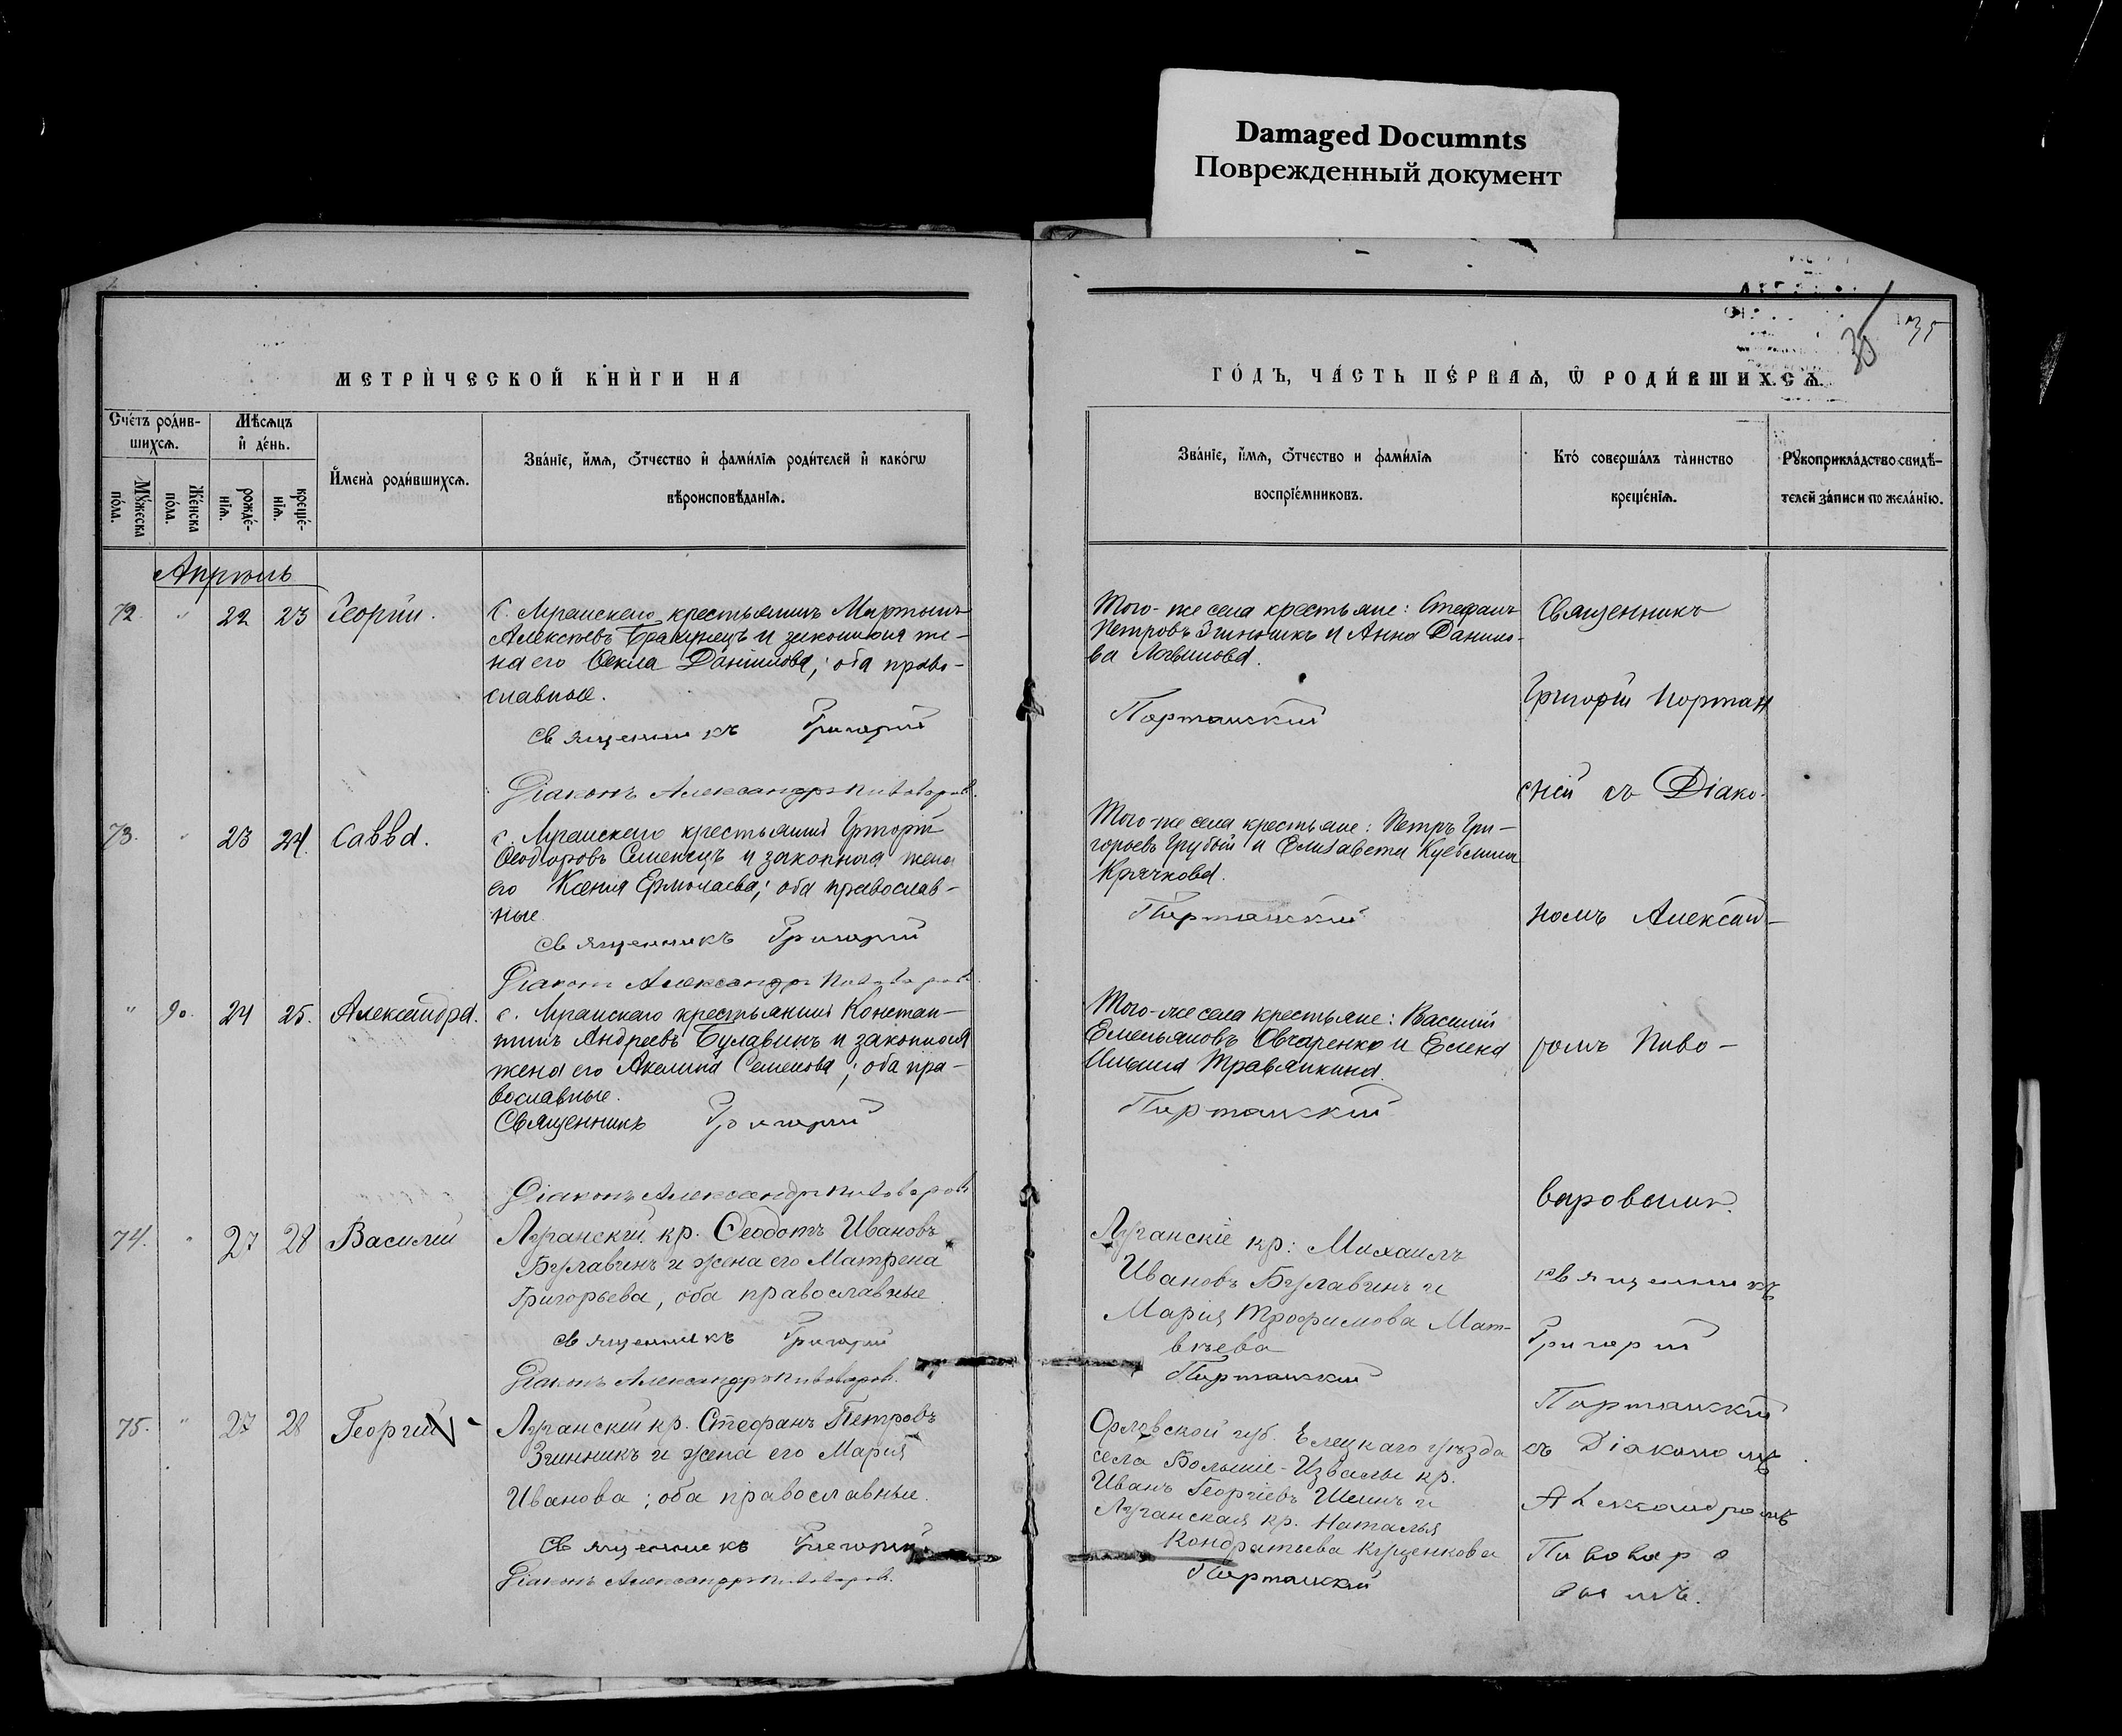 Damaged Documnts
Поврежденный документ
35
МЕТРИ́ЧЕСКОЙ КНИ́ГИ НА
ГО́ДЪ, ЧА́СТЬ ПЕ́РВАѦ, Ѿ РОДИ́ВШИХСѦ.
Сче́тъ роди́в-
шихсѧ.
Мѣ́сѧцъ
и҆ де́нь.
Мꙋ́жеска
по́ла.
Же́нска
по́ла.
рожде́-
нїѧ.
креще́-
нїѧ.
И҆мена̀ роди́вшихсѧ.
Зва́нїе, и҆́мѧ, ѻ҆́тчество и҆ фами́лїѧ роди́телей и҆ како́гѡ
вѣроисповѣ́данїѧ.
Зва́нїе, и҆́мѧ, ѻ҆́тчество и фами́лїѧ
воспрїе́мниковъ.
Кто́ соверша́лъ та̀инство
креще́нїѧ.
Рꙋкоприкла́дство свидѣ́-
телей за́писи по жела́нїю.
Апрѣль
72. " 22 23 Георгій.
с. Луганскаго крестьянинъ Мартынъ
Алексѣевъ и законная же-
на его Ѳекла Даніилова; оба право-
славные.
Священникъ Григорій
Діаконъ Александръ Пивоваровъ.
Того-же села крестьяне: Стефанъ
Петровъ Згинникъ и Анна Данило-
ва Логвинова.
Портанскій
Священникъ
Григорій Портан
скій съ Діако-
73. " 23 24. Савва.
с. Луганскаго крестьянинъ Григорій
Ѳеодоровъ Семенецъ и законная жена
его Ксенія Ермолаева; оба православ-
ные
Священникъ Григорій
Діаконъ Александръ Пивоваровъ
Того-же села крестьяне: Петръ Гри-
горьевъ Грубый и Елисавета
Крячкова.
Портанскій
номъ Алексан-
" 24 25. Александра.
с. Луганскаго крестьянинъ Констан-
тинъ Андреевъ Булавинъ и законная
жена его Акелина Семенова; оба пра-
вославные.
Священникъ Григорій
Діаконъ Александръ Пивоваровъ
Того-же села крестьяне: Василій
Емельяновъ Овчаренко и Елена
Ильина Травянкина.
Портанскій
ромъ Пиво-
варовымъ.
74. " 27 28 Василій
Луганскій кр. Ѳеодотъ Ивановъ
Булавинъ и жена его Матрена
Григорьева, оба православные
Священникъ Григорій
Діаконъ Александръ Пивоваровъ.
Луганскіе кр: Михаилъ
Ивановъ Булавинъ и
Марія Трофимова Мат-
вѣева
Портанскій
Священникъ
Григорій
Портанскій
75. " 27 28 Георгій
Луганскій кр. Стефанъ Петровъ
Згинникъ и жена его Марія
Иванова; оба православные.
Священникъ Григорій
Діаконъ Александръ Пивоваровъ.
Орловской губ. Елецкаго уѣзда
села Больше-Извалы кр.
Иванъ Георгіевъ Шеинъ и
Луганская кр. Наталья
Кондратьева Куценкова
Портанскій
съ Діакономъ
Александромъ
Пивоваро
вымъ.